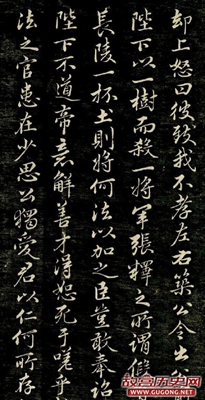 却上怒曰彼致我不孝左右築令出
陛下以一樹而殺一將軍張釋之所謂假
長陵一抔土則將何法以加之臣豈敢奉詔
陛下不道帝意解善才得恕死于嗟乎
法之官患在少思公獨愛君以仁何所存